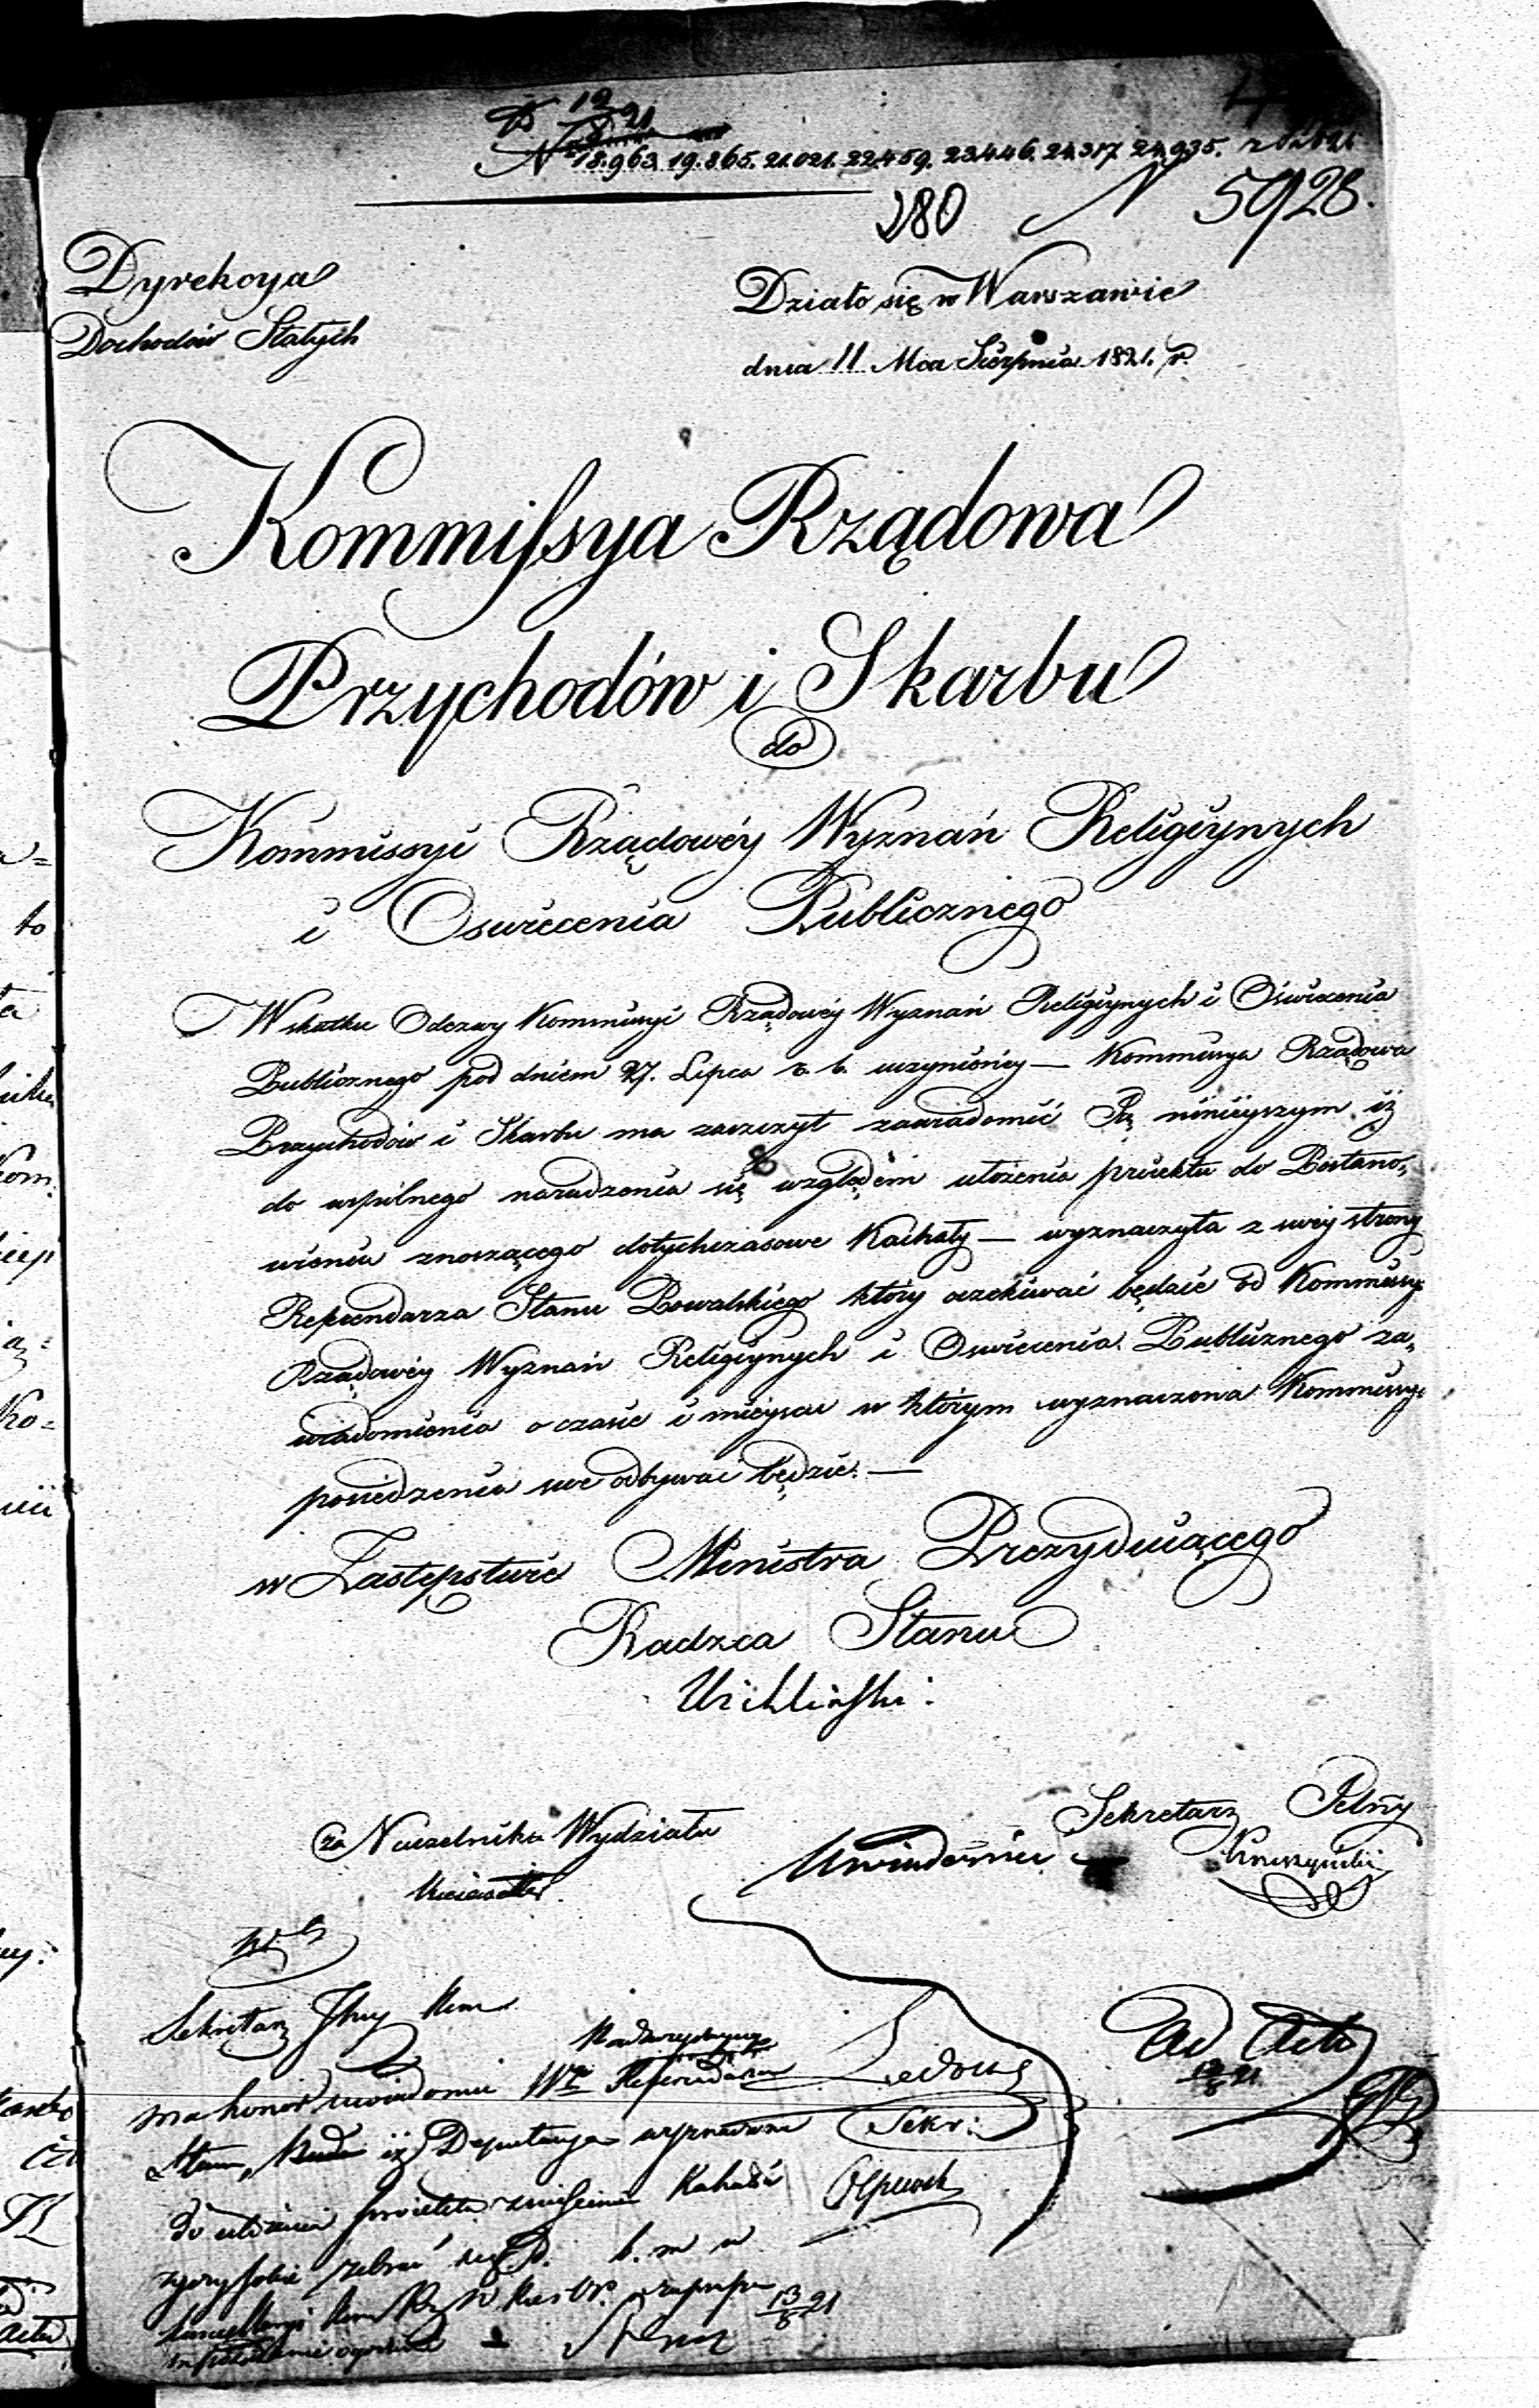 18.963. 19.865. 21.021. 22.459. 23.446. 24.317. 24.935.
280 N 5928.
Dyrekcya
Dochodów Stałych
Działo się w Warszawie
dnia 11 Mca Sierpnia 1821. r.
Kommissya Rządowa
Przychodów i Skarbu
do
Kommissyi Rządowéy Wyznań Religiynych
i Oswiecenia Publicznego
W skutku Odezwy Kommissyi Rządowéy Wyznań Religiynych i Oświecenia
Publicznego pod dniem 27. Lipca r. b. uczynionéy — Kommissya Rządowa
Przychodów i Skarbu ma zaszczyt zawiadomić Ją ninieyszym iż
do wspólnego naradzenia się względem ułożenia proiektu do Postano„
wienia znoszącego dotychczasowe Kachały — wyznaczyła z swéy strony
Referendarza Stanu Kowalskiego który oczekiwać będzie od Kommissyi
Rządowéy Wyznań Religiynych i Oswiecenia Publicznego za„
wiadomienia o czasie i mieyscu w którym wyznaczona Kommissya
posiedzenia swe odbywać będzie. —
w Zastępstwie Ministra Prezyduiącego
Radzca Stanu
za Naczelnika Wydziału
Sekretarz Jelny
Uwiadomić
Sekretarz Jlny Kom
ma honor uwiadomić Wgo Referendarza
Stanu iż Deputacya wyznaczona
do ułożenia proiektu zniesienia Kahałów
zebrać się b. m w
Sekr:
Ad Acta
13/8 21